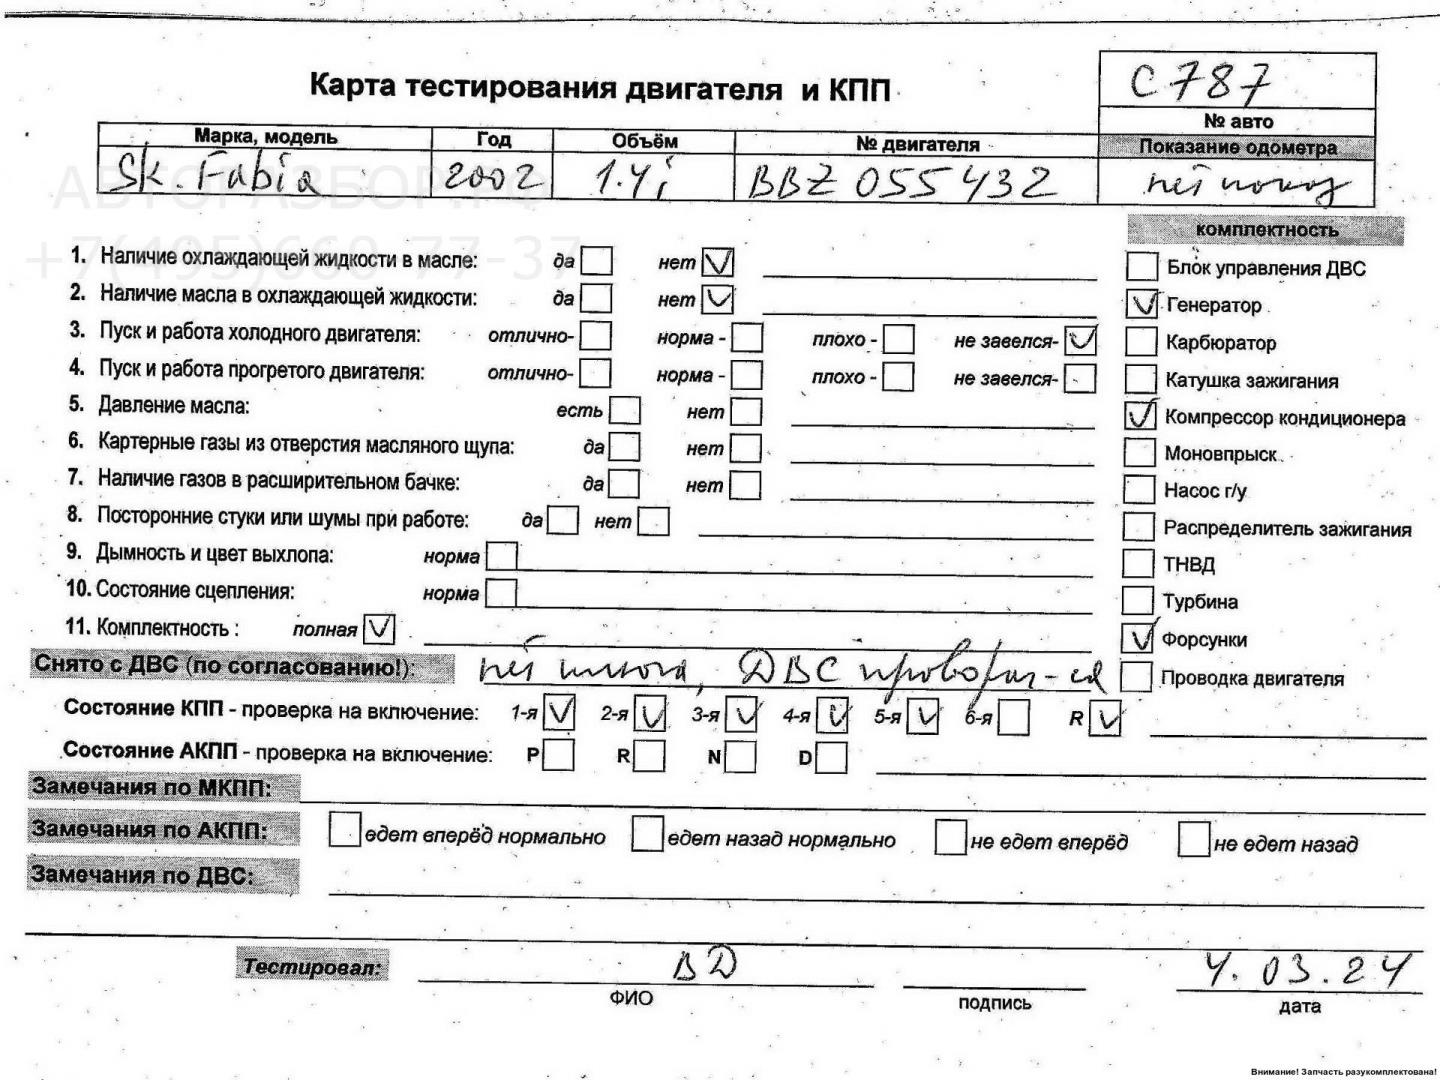 С787
Карта тестирования двигателя и КПП
№ авто
Марка, модель Год Объём № двигателя Показание одометра
Sk. Fabia 2002 1.4i BBZ 055432 нет показ
АВТОРАЗБОР.РФ
+7(495)660-77-37
комплектность
1. Наличие охлаждающей жидкости в масле: да нет V
Блок управления ДВС
2. Наличие масла в охлаждающей жидкости: да нет V
V Генератор
3. Пуск и работа холодного двигателя: отлично- норма - плохо - не завелся- V
Карбюратор
4. Пуск и работа прогретого двигателя: отлично- норма - плохо - не завелся-
Катушка зажигания
5. Давление масла: есть нет
V Компрессор кондиционера
6. Картерные газы из отверстия масляного щупа: да нет
Моновпрыск
7. Наличие газов в расширительном бачке: да нет
Насос г/у
8. Посторонние стуки или шумы при работе: да нет
Распределитель зажигания
9. Дымность и цвет выхлопа: норма
ТНВД
10. Состояние сцепления: норма
Турбина
11. Комплектность : полная V
V Форсунки
Снято с ДВС (по согласованию!): нет ключа, ДВС проворач-ся
Проводка двигателя
Состояние КПП - проверка на включение: 1-я V 2-я V 3-я V 4-я V 5-я V 6-я R V
Состояние АКПП - проверка на включение: P R N D
Замечания по МКПП:
Замечания по АКПП: едет вперёд нормально едет назад нормально не едет вперёд не едет назад
Замечания по ДВС:
Тестировал: ВД 4.03.24
ФИО подпись дата
Внимание! Запчасть разукомплектована!